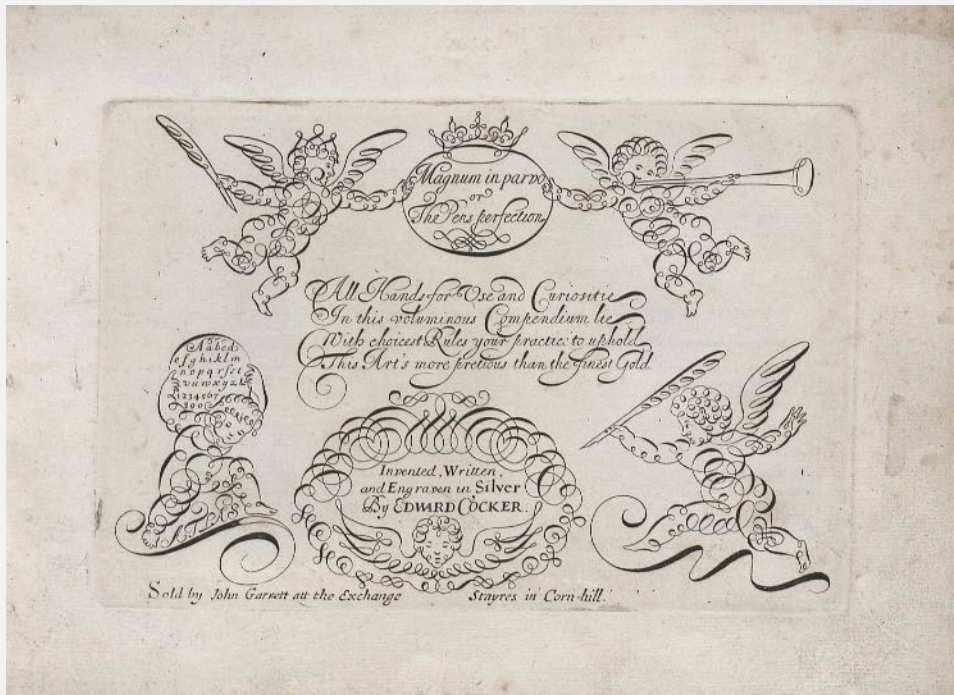 Magnum in parvo
or
The Pens perfection
All Hands for Use and Curiositie
In this voluminous Compendium lie
With choicest Rules your practic: to uphold
This Art's more pretious than the finest Gold.
A a b c d
e f g h i k l m
n o p q r s s t
v u w x y z &
1 2 3 4 5 6 7
8 9 0
ATLAS
Invented, Written,
and Engraven in Silver
By EDWARD COCKER.
Sold by John Garrett att the Exchange Stayres in Corn-hill.